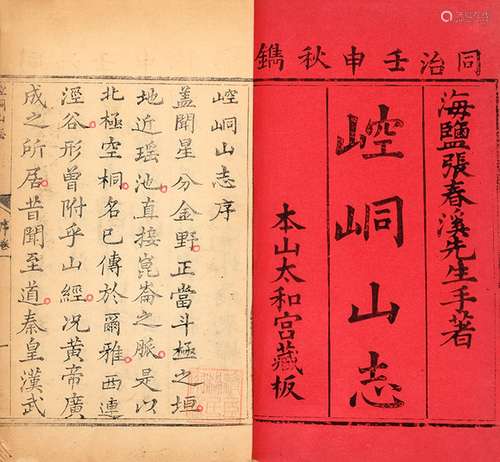 同治壬申秋鐫
海鹽張春溪先生手著
崆峒山志
本山太和宮藏板
崆峒山志序
蓋聞星分金野正當斗極之垣
地近瑶池直接崑崙之脈是以
北極空桐名已傳於爾雅西連
涇谷形曾附乎山經況黃帝廣
成之所居昔聞至道秦皇漢武